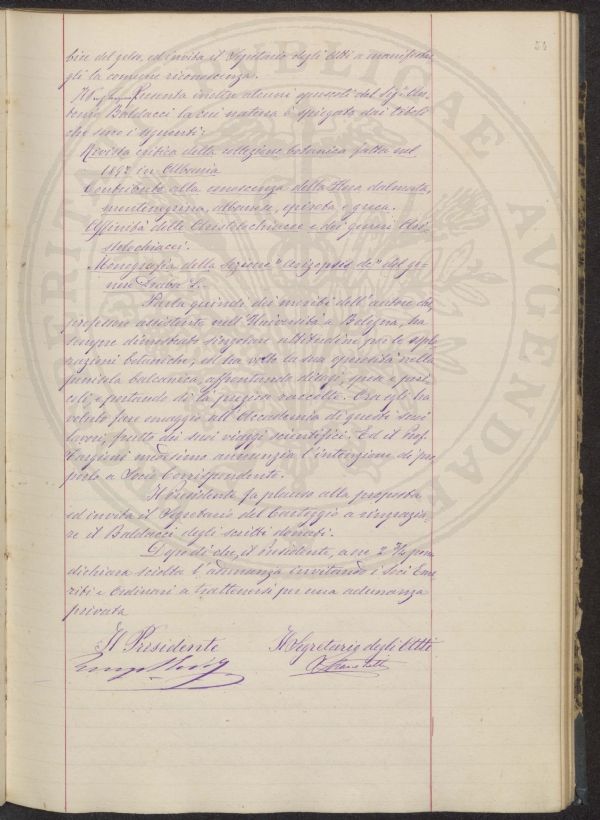 bice del gelso, ed invita il Segretario degli Atti a manifestar
gli la comune riconoscenza.
Presenta inoltre alcuni opuscoli del Sig. An-
tonio Baldacci la cui natura è spiegata dai titoli
che sono i seguenti:
Rivista critica della collezione botanica fatta nel
1892 in Albania
Contributo alla conoscenza della flora dalmata,
montenegrina, albanese, epirota e greca.
Affinità delle Aristolochiacee e dei generi Ari-
stolochiacei.
Monografia della Sezione "Aizopsis dc" del ge-
nere Draba L.
Parla quindi dei meriti dell'autore che,
professore assistente nell'Università a Bologna, ha
sempre dimostrato singolare attitudine per le esplo
razioni botaniche, ed ha volto la sua operosità nella
penisola balcanica, affrontando disagi, spese e peri
coli, e portando di là preziose raccolte. Ora egli ha
voluto fare omaggio all'Accademia di questi suoi
lavori, frutto dei suoi viaggi scientifici. Ed il Prof.
Targioni medesimo annunzia l'intenzione di pro
porlo a Socio Corrispondente.
Il Presidente fa plauso alla proposta
ed invita il Segretario del Carteggio a ringrazia-
re il Baldacci degli scritti donati.
Dopo di che, il presidente, a ore 2 3/4 pom.
dichiara sciolta l'adunanza invitando i Soci Eme
riti e Ordinari a trattenersi per una adunanza
privata
Il Presidente
Il Segretario degli Atti